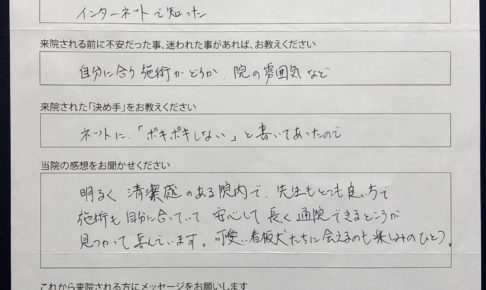 インターネットで知った
来院される前に不安だった事、迷われた事があれば、お教えください
自分に合う施術かどうか、院の雰囲気など
来院された「決め手」をお教えください
ネットに、「ポキポキしない」と書いてあったので
当院の感想をお聞かせください
明るく清潔感のある院内で、先生もとても良い方で
施術も自分に合っていて、安心して長く通院できるところが
見つかって喜んでいます。可愛い看板犬たちに会えるのも楽しみのひとつ。
これから来院される方にメッセージをお願いします